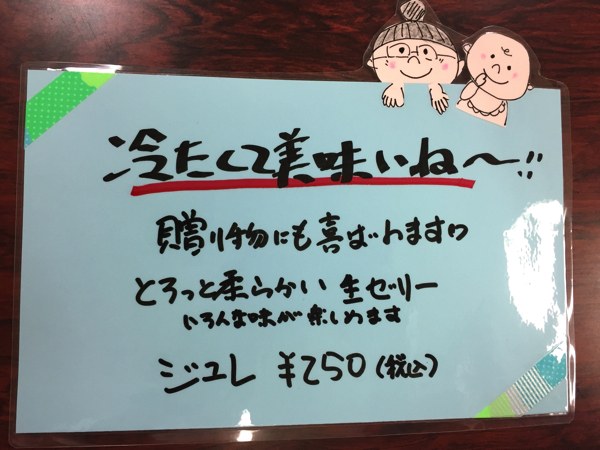 冷たくて美味いね〜!!
贈り物にも喜ばれますョ
とろっと柔らかい 生ゼリー
いろんな味が楽しめます
ジュレ ¥250(税込)